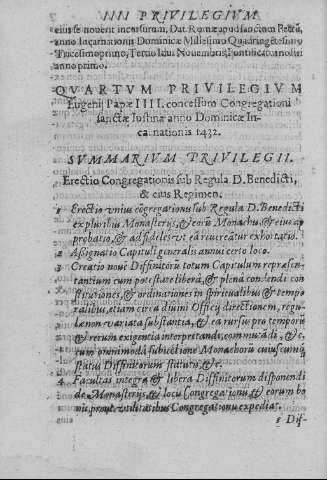 IIII PRIVILEGIVM
eius se nouerit incursurum, Dat. Romæ apud sanctum Petrũ,
anno Incarnationis Dominicæ Millesimo Quadringẽtesimo
Tricesimoprimo, Tertio Idus Nouembris, Pontificatus
anno primo.
QVARTVM PRIVILEGIVM
Eugenij Papæ IIII. concessum Congregationi
sanctæ Iustinæ anno Dominicæ In-
carnationis 1432.
SVMMARIVM PRIVILEGII.
Erectio Congregationis sub Regula D. Benedicti,
& eius Regimen.
1 Erectio vnius cõgregationis sub Regula D. Benedicti
ex pluribus Monasterijs, & eorũ Monachis, & eius ap
probatio, & ad fideles vt eã recreatur exhortatio.
2 Assignatio Capituli generalis annui certo loco.
3 Creatio noui Diffinitorũ totum Capitulum repræsen-
tantium cum potestate liberâ, & plenâ condendi con
stitutiones, & ordinationes in spiritualibus & tempo
ralibus, etiam circa diuini Officij directionem, regu-
læ non variata substantia, & ea rursus pro temporũ
& rerum exigentia interpretandi, commutãdi, &c.
cum omnimoda subiectione Monachorũ cuiuscumq
status Diffinitorum statutis, &c.
4 Facultas integra & libera Diffinitorum disponendi
de Monasterijs, & locis Congregationis, & eorum bo
nis, prout vtilitatibus Congregationis expediat.
Dif-